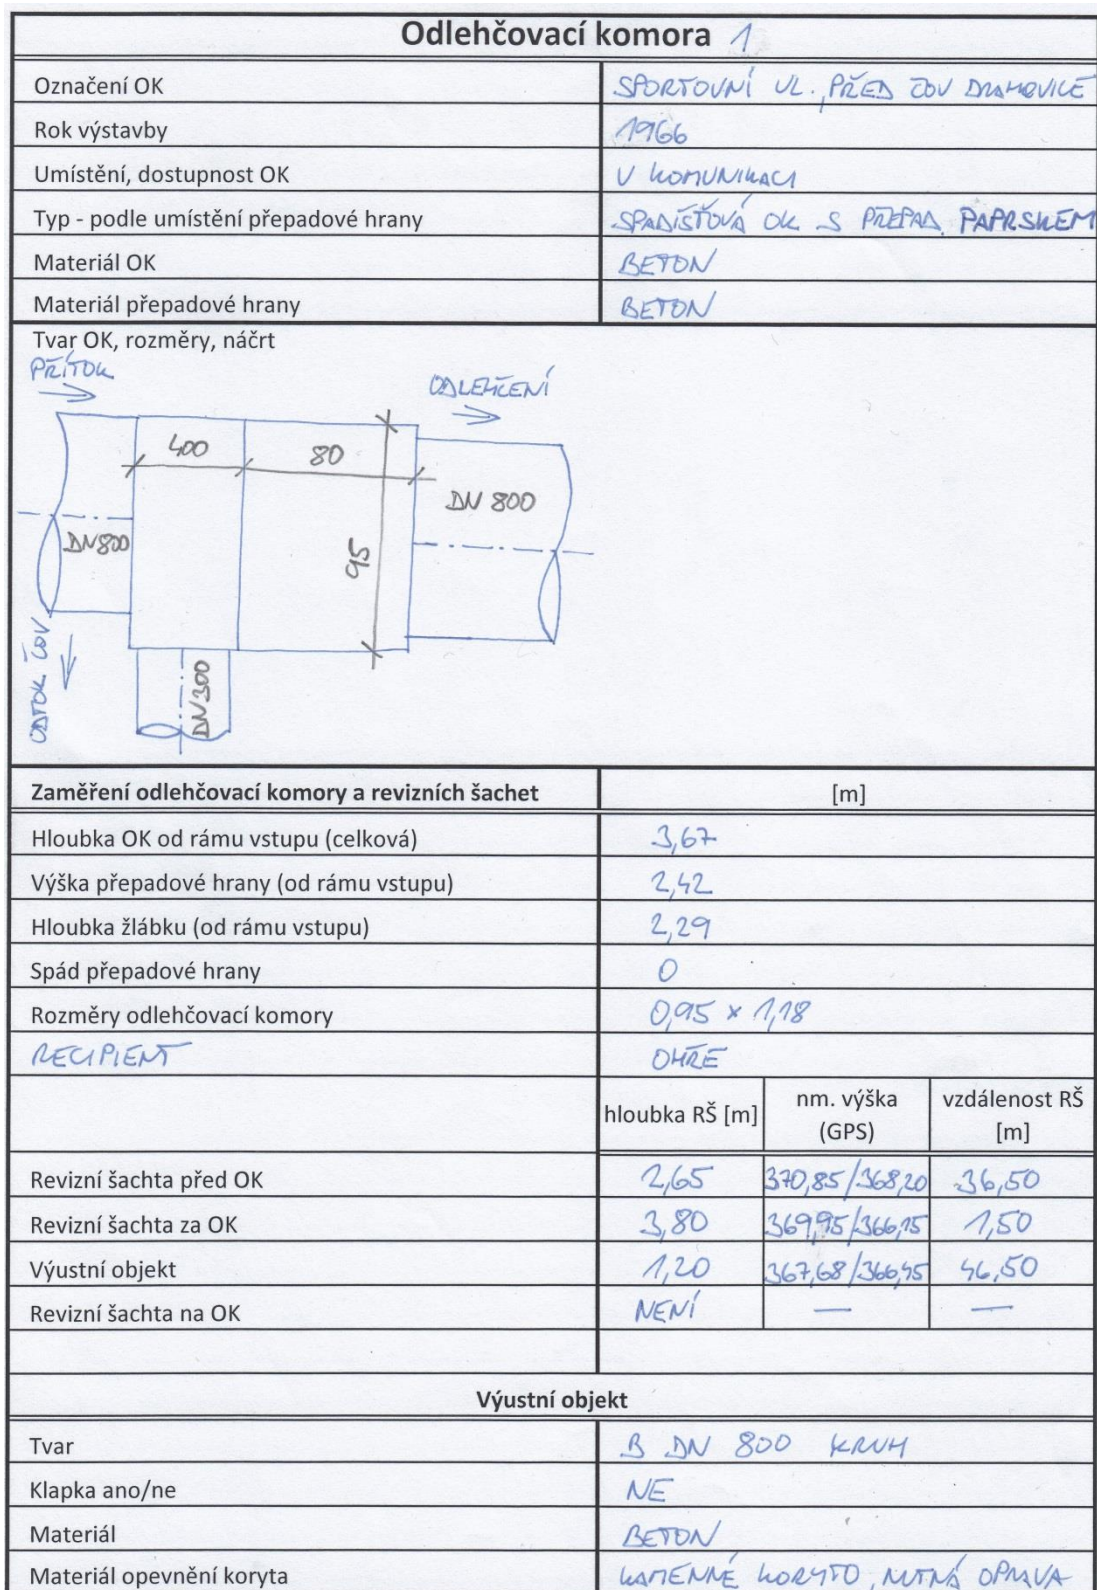 Odlehčovací komora 1
Označení OK SPORTOVNÍ UL., PŘED ČOV DRAHOVICE
Rok výstavby 1966
Umístění, dostupnost OK V KOMUNIKACI
Typ - podle umístění přepadové hrany SPADIŠŤOVÁ OK S PŘEPAD. PAPRSKEM
Materiál OK BETON
Materiál přepadové hrany BETON
Tvar OK, rozměry, náčrt
PŘÍTOK
ODLEHČENÍ
400
80
DN 800
DN800
95
ODTOK ČOV
DN300
Zaměření odlehčovací komory a revizních šachet [m]
Hloubka OK od rámu vstupu (celková) 3,67
Výška přepadové hrany (od rámu vstupu) 2,42
Hloubka žlábku (od rámu vstupu) 2,29
Spád přepadové hrany 0
Rozměry odlehčovací komory 0,95 × 1,18
RECIPIENT OHŘE
hloubka RŠ [m] nm. výška (GPS) vzdálenost RŠ [m]
Revizní šachta před OK 2,65 370,85/368,20 36,50
Revizní šachta za OK 3,80 369,95/366,15 1,50
Výustní objekt 1,20 367,68/366,45 46,50
Revizní šachta na OK NENÍ — —
Výustní objekt
Tvar B DN 800 KRUH
Klapka ano/ne NE
Materiál BETON
Materiál opevnění koryta KAMENNÉ KORYTO, NUTNÁ OPRAVA